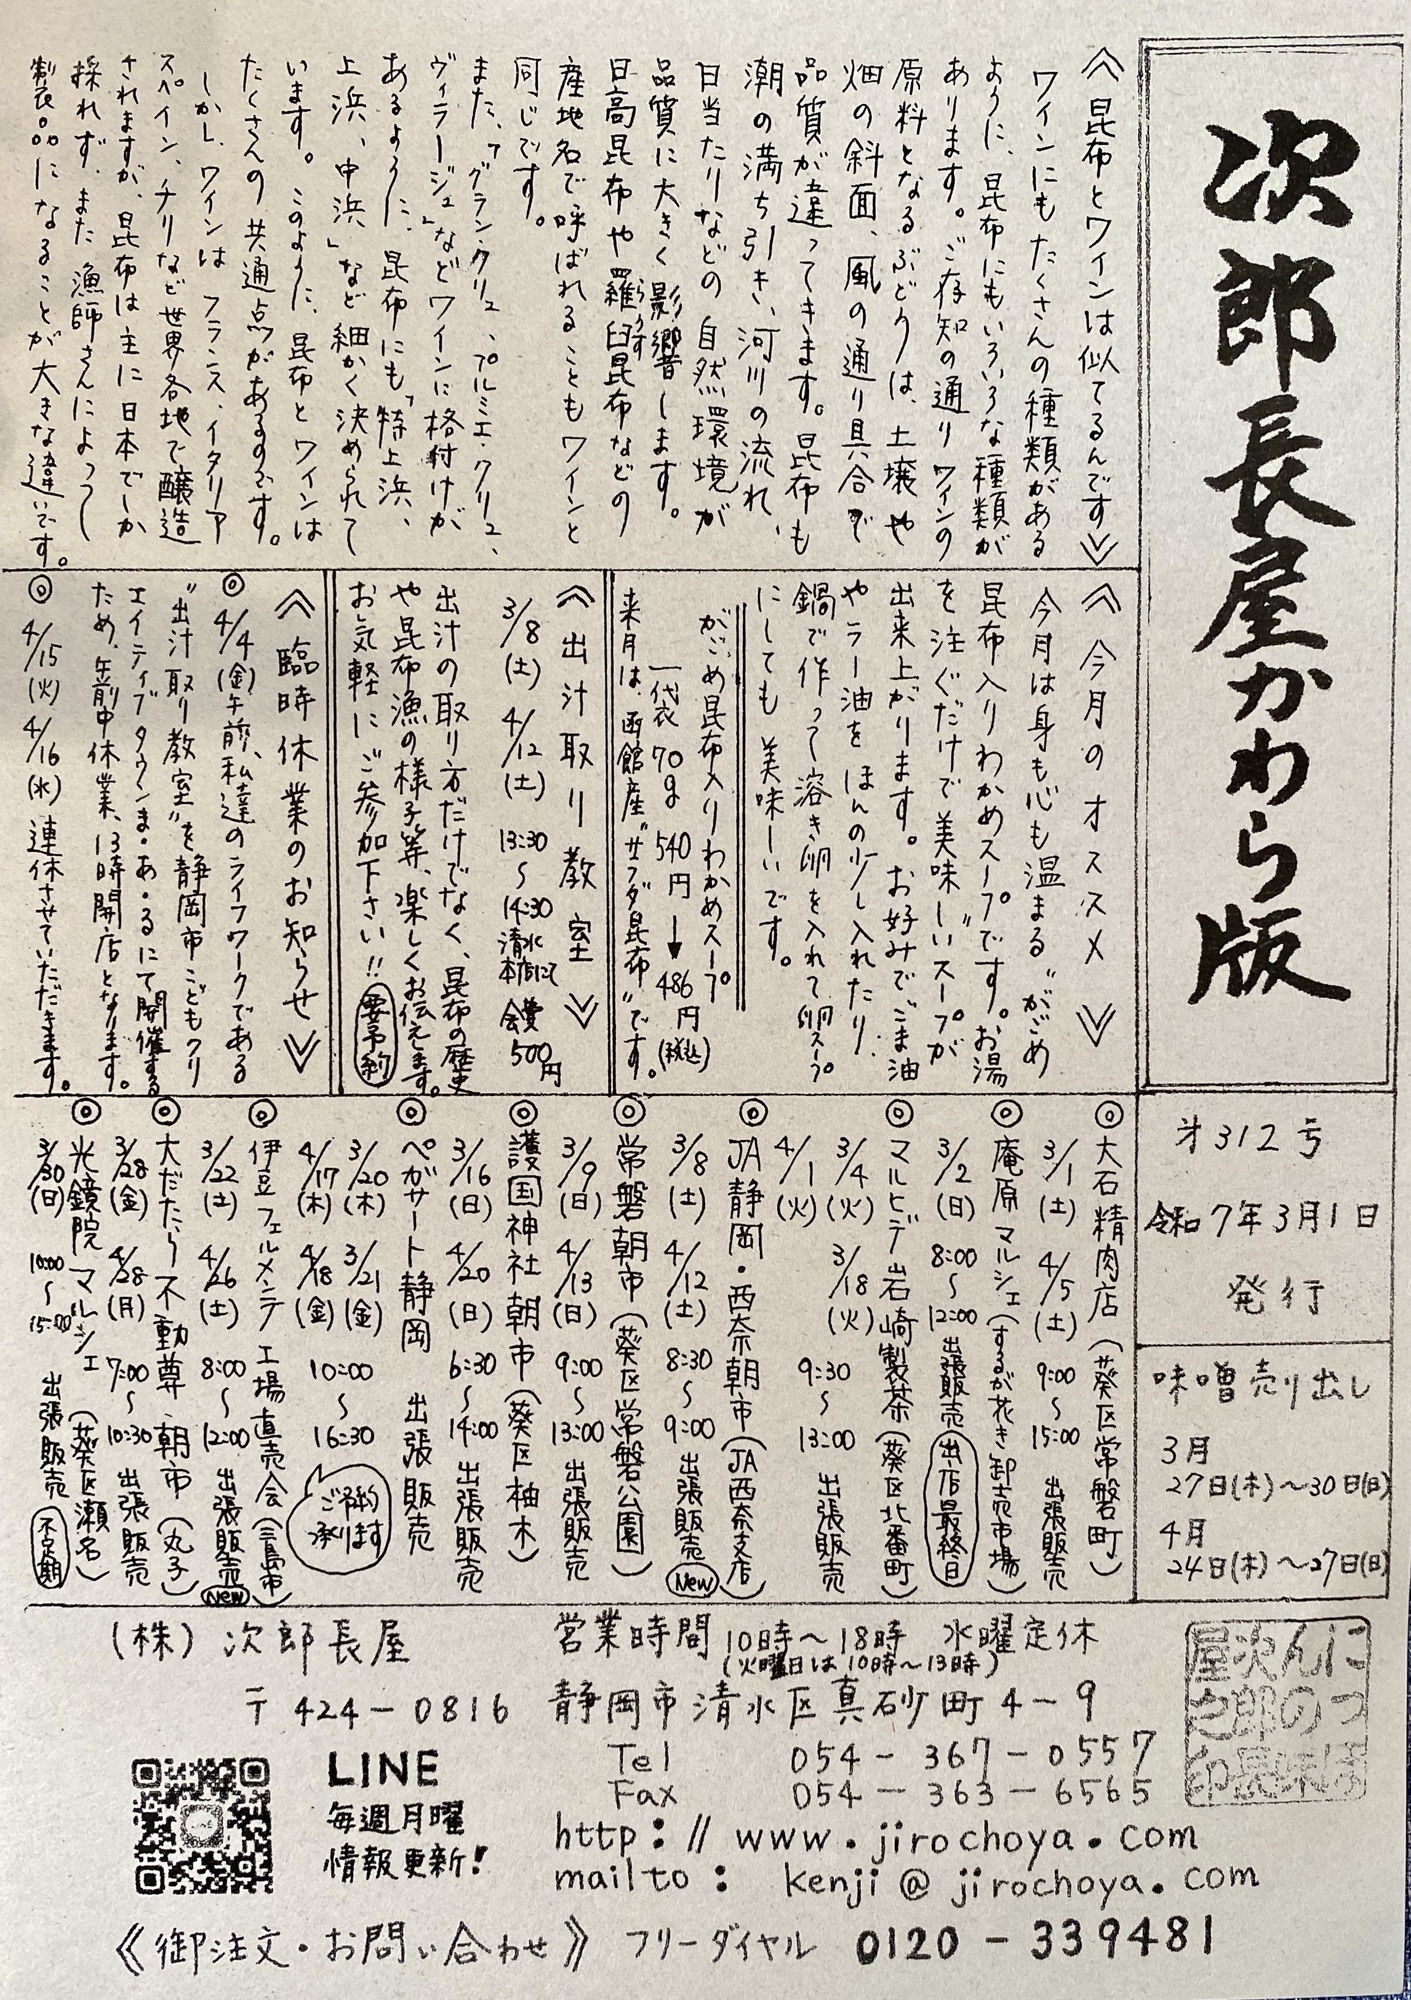 次郎長屋かわら版
第312号
令和7年3月1日
発行
味噌売り出し
3月
27日(木)～30日(日)
4月
24日(木)～27日(日)
≪昆布とワインは似てるんです≫
ワインにもたくさんの種類がある
ように、昆布にもいろいろな種類が
あります。ご存知の通りワインの
原料となるぶどうは、土壌や
畑の斜面、風の通り具合で
品質が違ってきます。昆布も
潮の満ち引き、河川の流れ、
日当たりなどの自然環境が
品質に大きく影響します。
日高昆布や羅臼昆布などの
らうす
産地名で呼ばれることもワインと
同じです。
また、「グラン・クリュ、プルミエ・クリュ、
ヴィラージュ」などワインに格付けが
あるように、昆布にも「特上浜、
上浜、中浜」など細かく決められて
います。このように、昆布とワインは
たくさんの共通点があるのです。
しかし、ワインはフランス、イタリア
スペイン、チリなど世界各地で醸造
されますが、昆布は主に日本でしか
採れず、また漁師さんによって
製品になることが大きな違いです。
≪今月のオススメ≫
今月は身も心も温まる“がごめ
昆布入りわかめスープです。お湯
を注ぐだけで美味しい”スープが
出来上がります。お好みでごま油
やラー油をほんの少し入れたり、
鍋で作って溶き卵を入れて卵スープ
にしても美味しいです。
がごめ昆布入りわかめスープ
一袋70g 540円→486円(税込)
来月は、函館産“サラダ昆布”です。
≪出汁取り教室≫
3/8(土) 4/12(土) 13:30～14:30 清水本店にて 会費500円
出汁の取り方だけでなく、昆布の歴史
や昆布漁の様子等、楽しくお伝えします。
お気軽にご参加下さい!! 要予約
≪臨時休業のお知らせ≫
◎4/4(金)午前、私達のライフワークである
“出汁取り教室”を静岡市こどもクリ
エイティブタウンま・あ・るにて開催する
ため、午前中休業、13時開店となります。
◎4/15(火) 4/16(水)連休させていただきます。
◎大石精肉店(葵区常磐町)
3/1(土) 4/5(土) 9:00～15:00 出張販売
◎庵原マルシェ(するが花き卸売市場)
3/2(日) 8:00～12:00 出張販売 出店最終日
◎マルヒデ岩崎製茶(葵区北番町)
3/4(火) 3/18(火) 9:30～13:00 出張販売
4/1(火)
◎JA静岡・西奈朝市(JA西奈支店)
3/8(土) 4/12(土) 8:30～9:00 出張販売 New
◎常磐朝市(葵区常磐公園)
3/9(日) 4/13(日) 9:00～13:00 出張販売
◎護国神社朝市(葵区柚木)
3/16(日) 4/20(日) 6:30～14:00 出張販売
◎ペガサート静岡 出張販売
3/20(木) 3/21(金) 10:00～16:30
4/17(木) 4/18(金)
ご予約承ります
◎伊豆フェルメンテ工場直売会(三島市)
3/22(土) 4/26(土) 8:00～12:00 出張販売 New
◎大だたら不動尊朝市(丸子)
3/28(金) 4/28(月) 7:00～10:30 出張販売
◎光鏡院マルシェ(葵区瀬名)
3/30(日) 10:00～15:00 出張販売 不定期
(株)次郎長屋
営業時間 10時～18時 水曜定休
(火曜日は10時～13時)
〒424-0816 静岡市清水区真砂町4-9
Tel 054-367-0557
Fax 054-363-6565
http://www.jirochoya.com
mailto: kenji@jirochoya.com
LINE
毎週月曜
情報更新!
≪御注文・お問い合わせ≫ フリーダイヤル 0120-339481
にっぽ
んの味
次郎長
屋之印